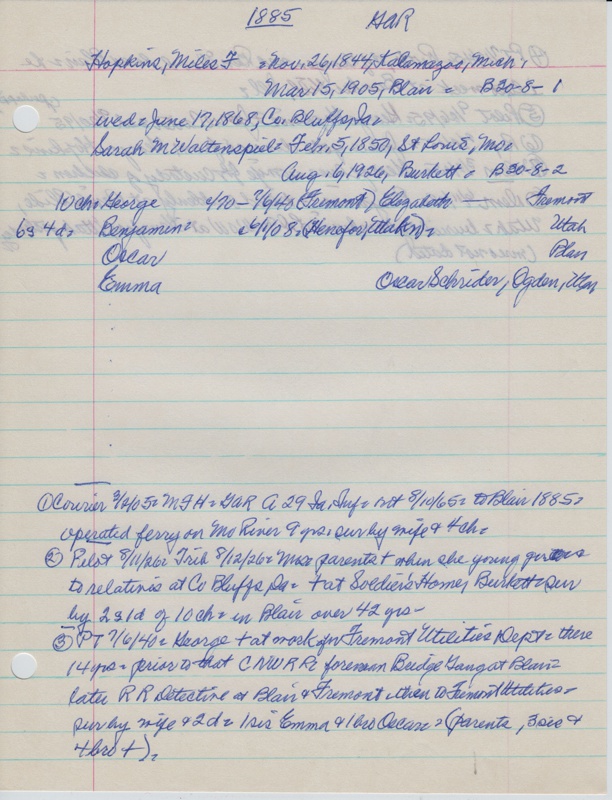 1885 GAR
Hopkins, Miles F = Nov. 26, 1844, Kalamazoo, Mich;
Mar. 15, 1905, Blair = B30-8-1
wed = June 17, 1868, Co. Bluffs, Ia =
Sarah M Waltenspiel = Febr. 5, 1850, St Louis, Mo =
Aug. 6, 1926, Burkett = B30-8-2
10 ch = George 4/70 - 7/6/40 (Fremont) Elizabeth — Fremont
6s 4d = Benjamin = 6/1/08, Henefer, Utah = Utah
Oscar Blair
Emma Oscar Schrider, Ogden, Utah
① Courier 3/ /05 = MFH = GAR A 29 Ia. Inf = 8/10/65 = to Blair 1885 =
operated ferry on Mo River 9 yrs = sur by wife & 4 ch =
② Pilot 8/11/26 = Trib 8/12/26 = Mrs = parents + when she young
to relatives at Co Bluffs, Ia = + at Soldiers Home, Burkett = sur
by 2s 1d of 10 ch = in Blair over 42 yrs -
③ PT 7/6/40 = George + at work for Fremont Utilities Dept = there
14 yrs = prior to that CNWRR foreman Bridge Gang at Blair =
later RR Detective at Blair & Fremont, then to Fremont Utilities =
sur by wife & 2d = 1 sis Emma & 1 bro Oscar = (parents, 3 sis &
4 bro +) =